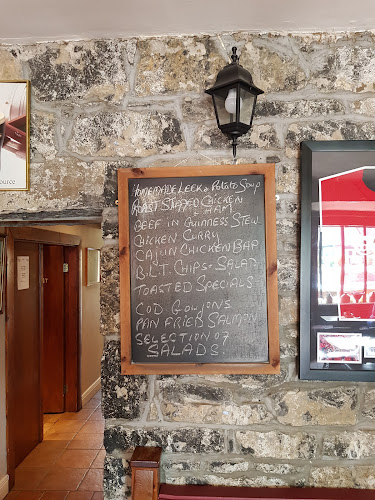 HOMEMADE LEEK & POTATO SOUP
ROAST STUFFED CHICKEN
& HAM
BEEF IN GUINNESS STEW
CHICKEN CURRY
CAJUN CHICKEN BAP
B.L.T. CHIPS & SALAD
TOASTED SPECIALS
COD GOUJONS
PAN FRIED SALMON
SELECTION OF
SALADS
ource